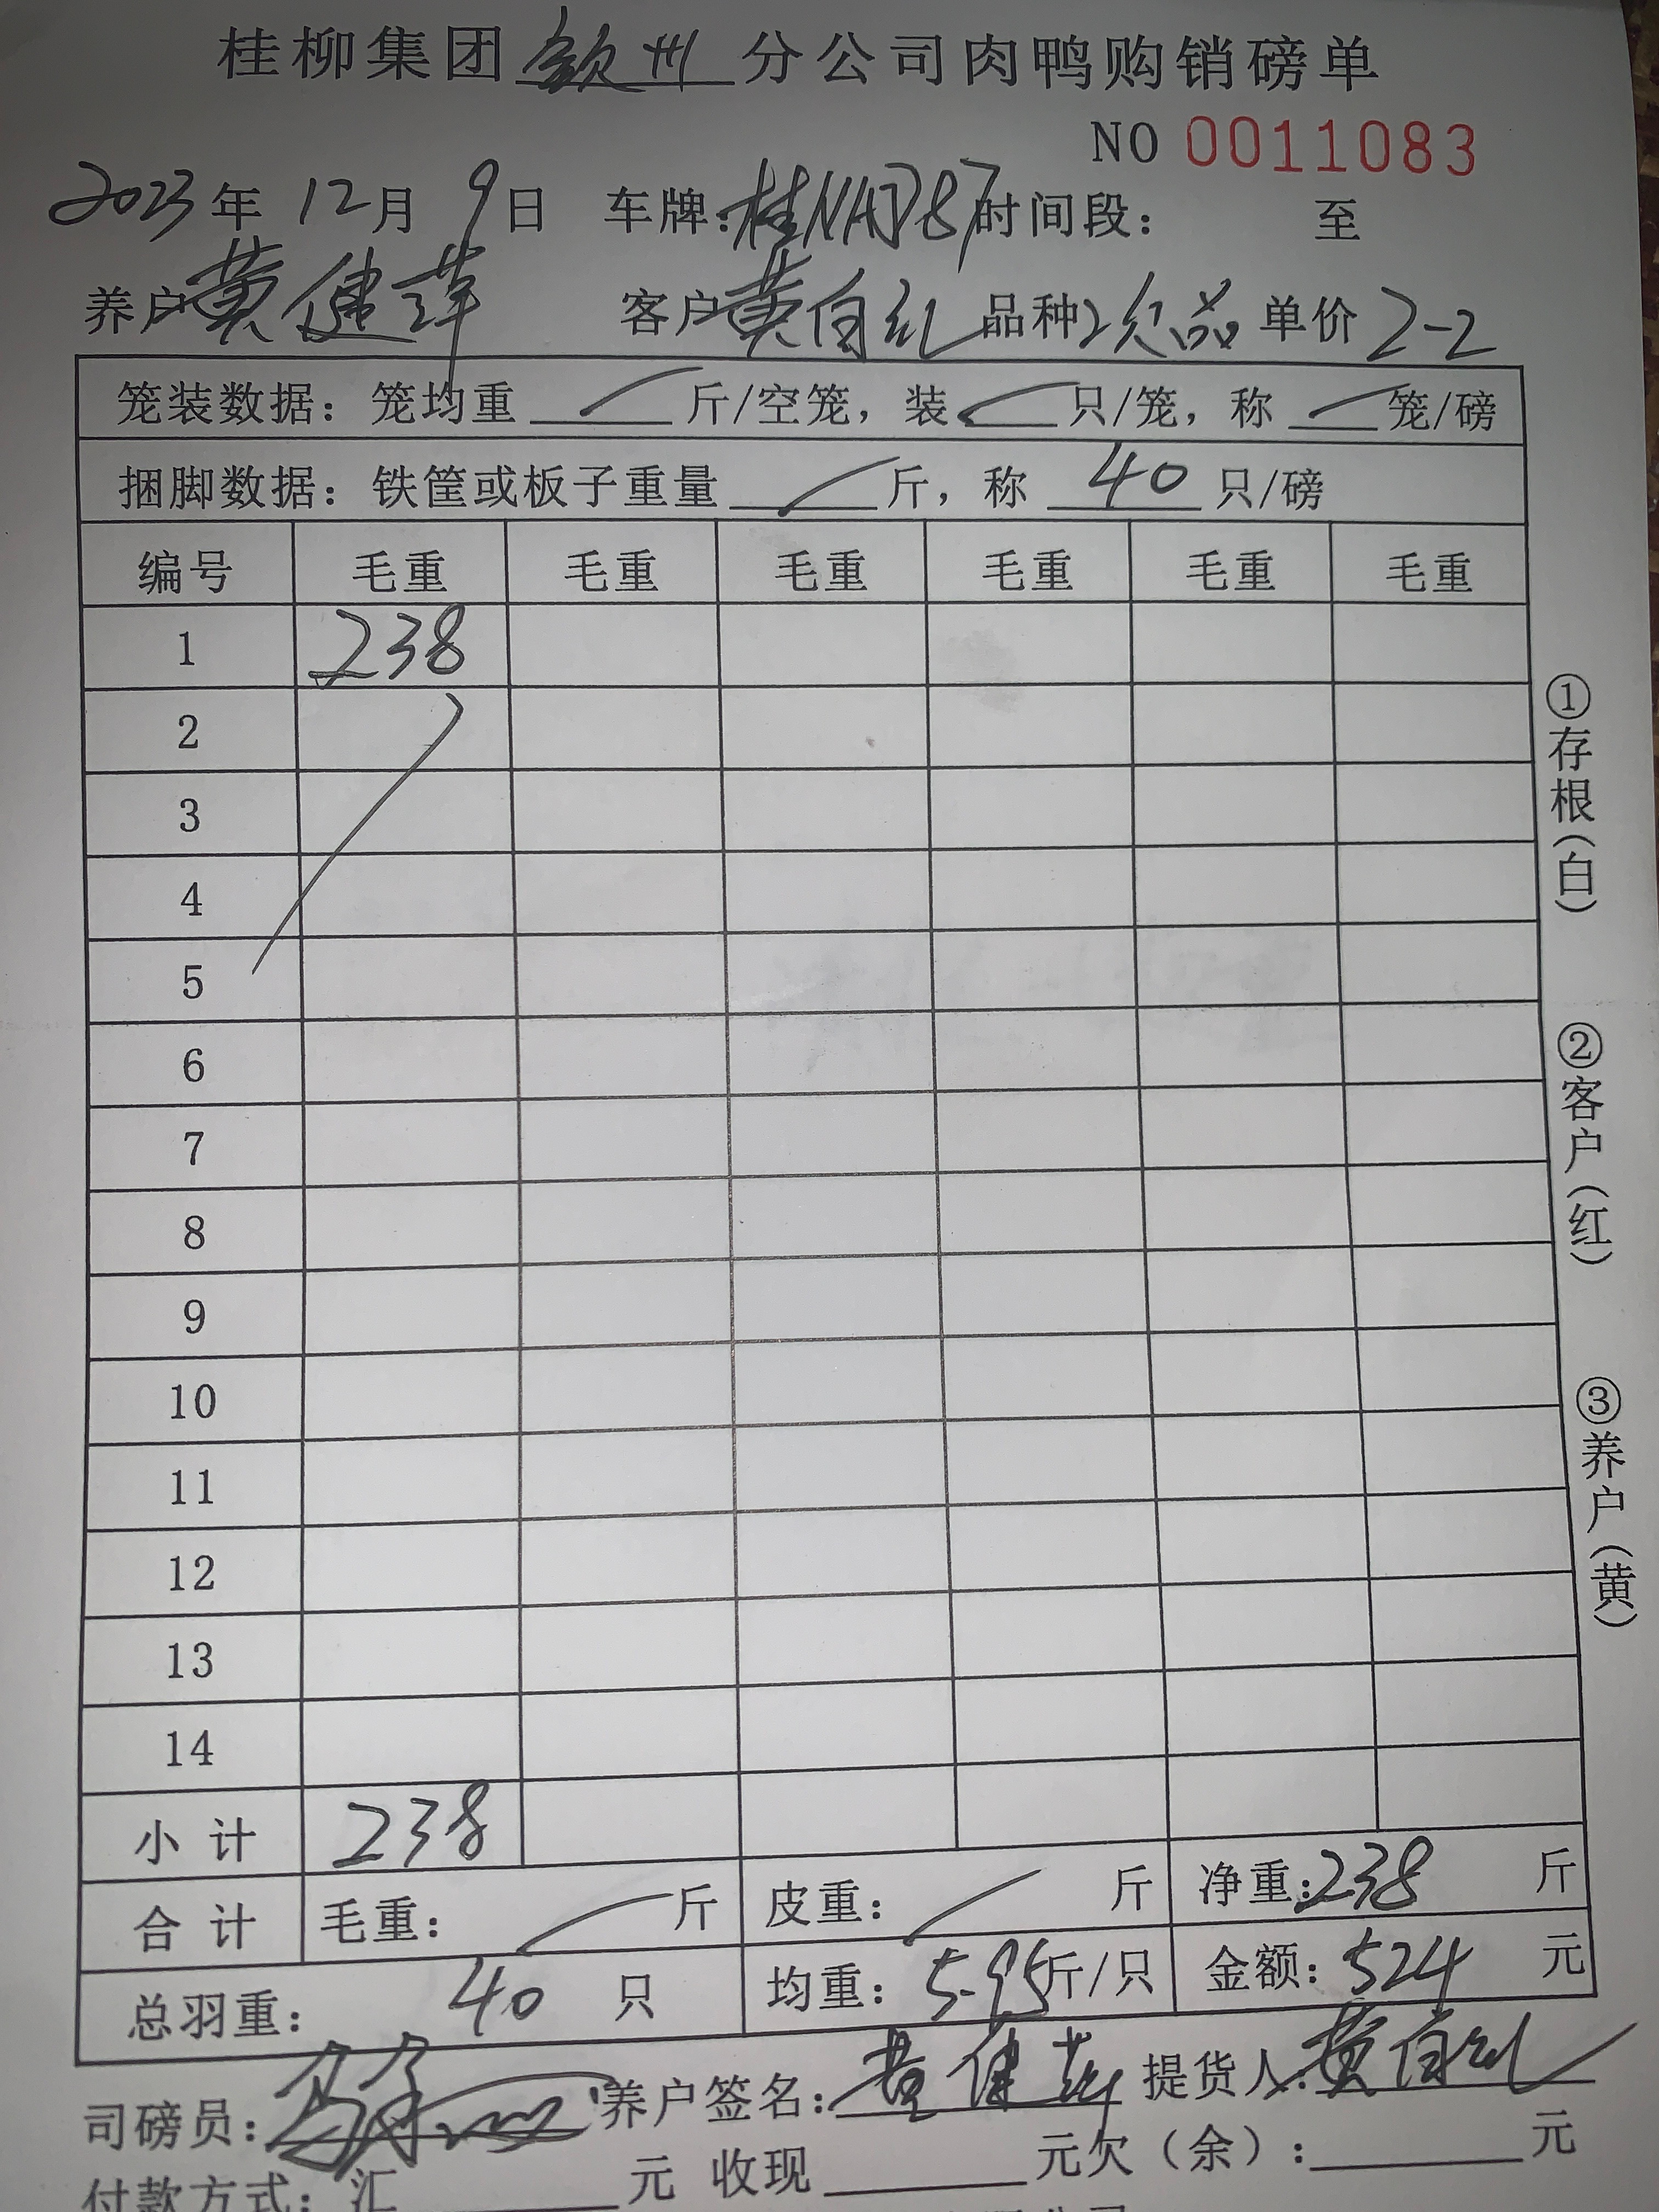 桂柳集团 钦州 分公司肉鸭购销磅单
NO 0011083
2023年 12月 9日 车牌:桂NAD787时间段: 至
养户 黄健萍 客户 黄自红 品种 次品 单价 2-2
笼装数据：笼均重 斤/空笼，装 只/笼，称 笼/磅
捆脚数据：铁筐或板子重量 斤，称 40 只/磅
编号 毛重 毛重 毛重 毛重 毛重 毛重
1 238
2
3
4
5
6
7
8
9
10
11
12
13
14
小 计 238
合 计 毛重： 斤 皮重： 斤 净重:238 斤
总羽重： 40 只 均重：5-95斤/只 金额：524 元
司磅员： 养户签名：黄健萍 提货人:黄自红
付款方式：汇 元 收现 元欠（余）： 元
①存根（白）
②客户（红）
③养户（黄）